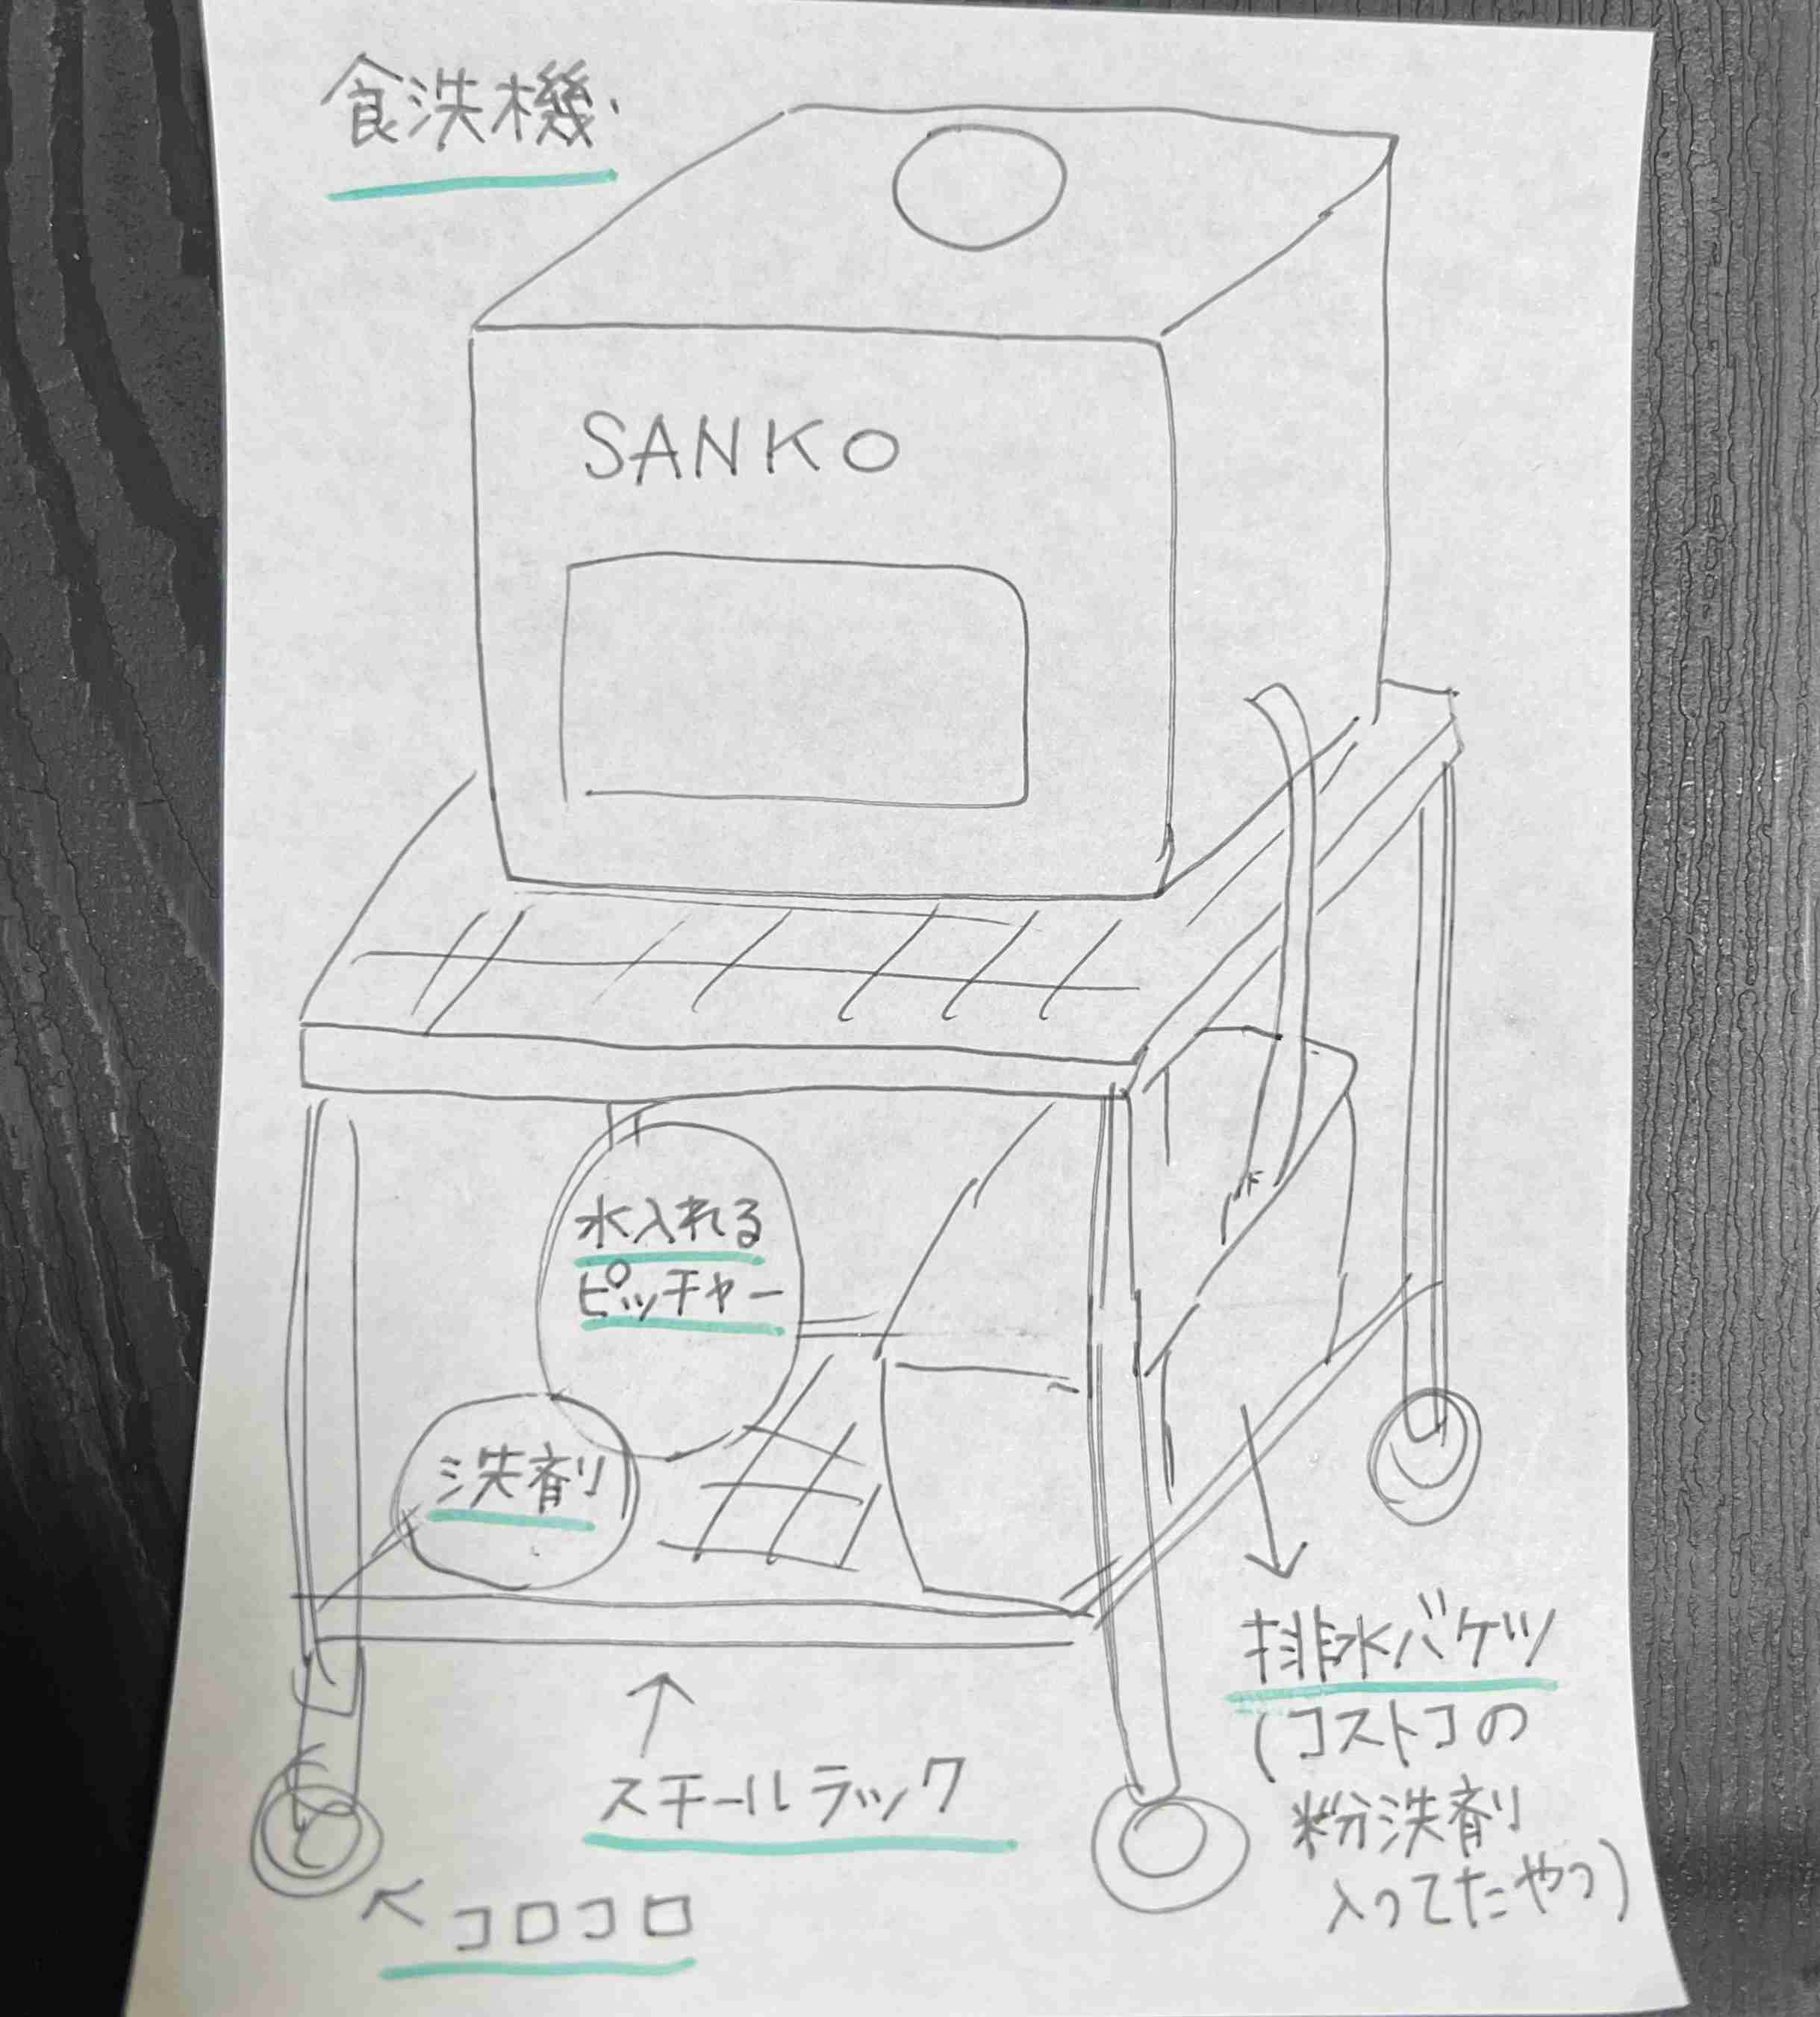 食洗機
SANKO
水入れる
ピッチャー
洗剤
排水バケツ
(コストコの
粉洗剤
入ってたやつ)
スチールラック
コロコロ